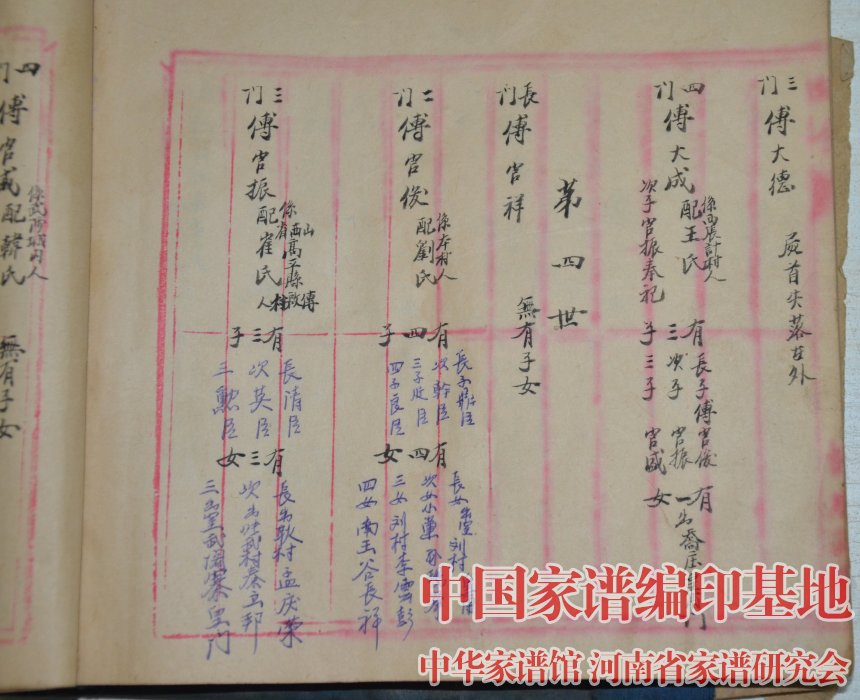 三門 傅大德 屍首失落在外
四門 傅大成配王氏
係西張計村人
次子官振奉祀
有三子
長子傅官俊
次子官振
三子官威
有一女
出喬
第四世
長門 傅官祥 無有子女
二門 傅官俊配劉氏
係本村人
有四子
長子
次幹臣
三子
四子良臣
有四女
長女出堂刘村
次女小董
三女刘村李雲彭
四女南王谷長祥
三門 傅官振配崔氏
係山西省高平縣
有三子
長清臣
次英臣
三勲臣
有三女
長出耿村孟庆荣
三出
四門 傅官威配韓氏 無有子女
係武陟城内人
中国家谱编印基地
中华家谱馆 河南省家谱研究会